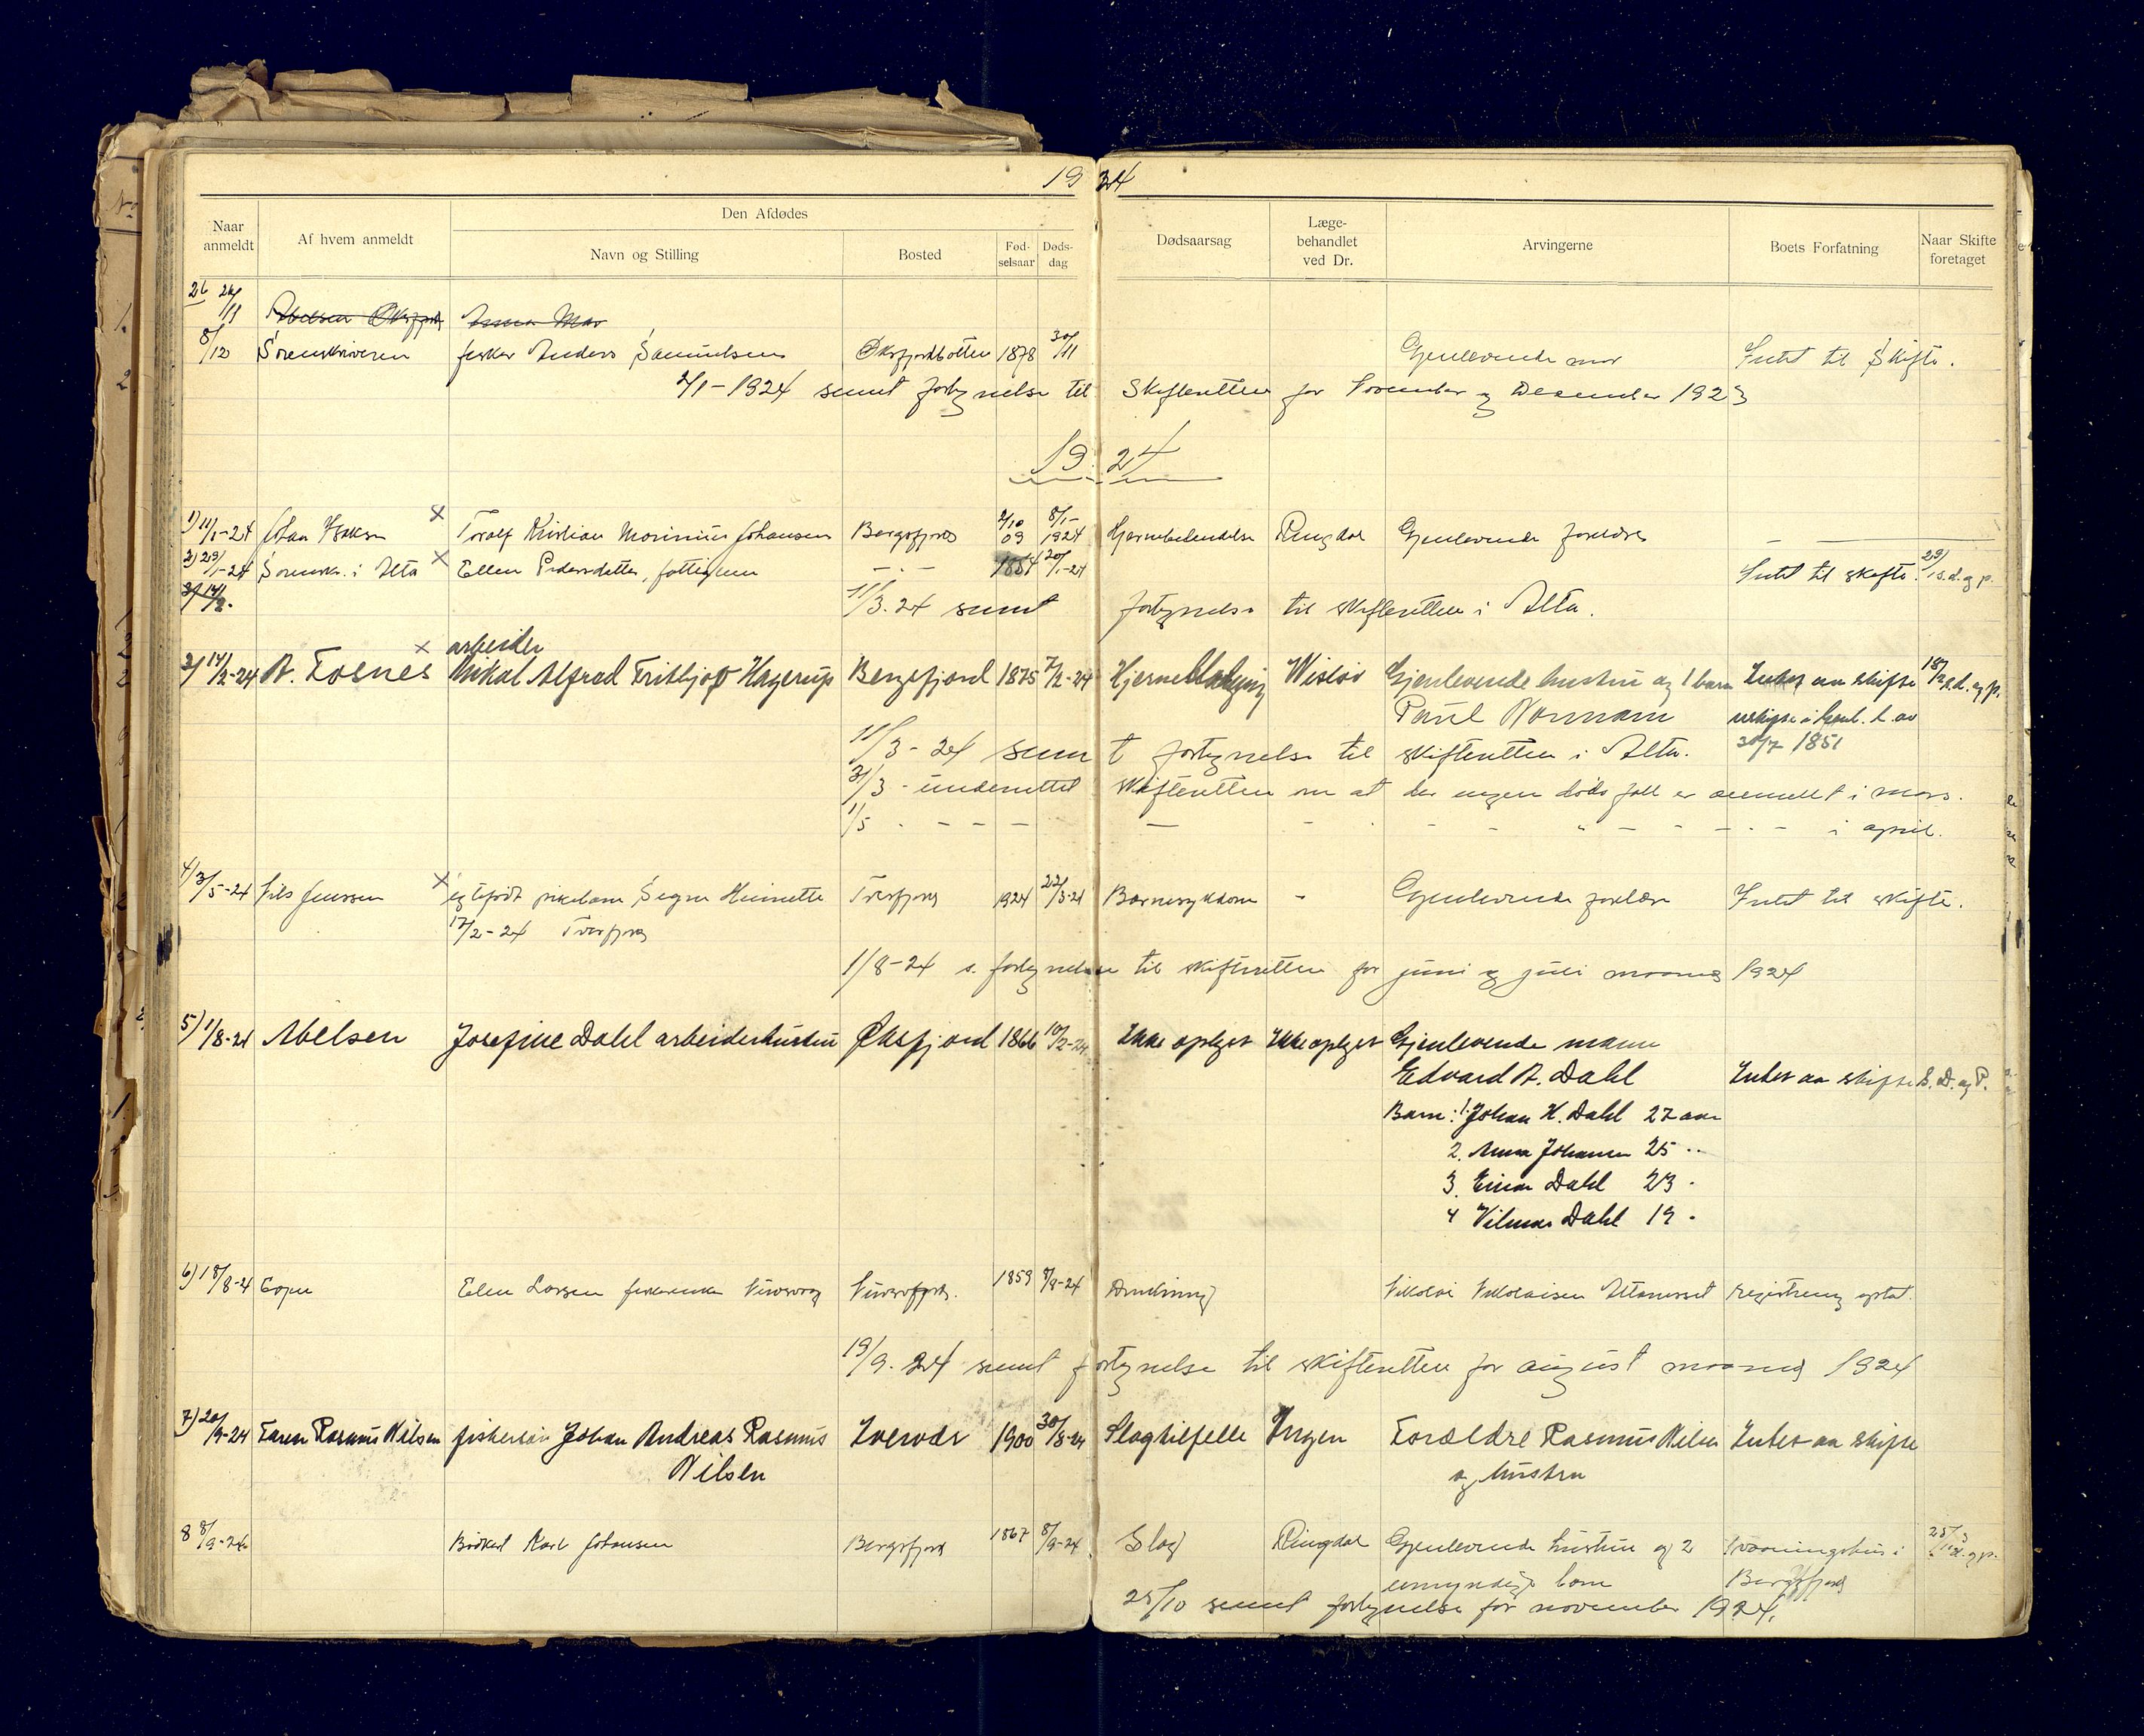 19 24
Naar anmeldt
Af hvem anmeldt
Den Afdødes
Navn og Stilling
Bosted
Fød- selsaar
Døds- dag
Dødsaarsag
Læge- behandlet ved Dr.
Arvingerne
Boets Forfatning
Naar Skifte foretaget
26 24/11 Abelsen Øksfjord
8/12 Sorenskriveren fisker Anders Samuelsen Øksfjordbotten 1878 30/11 Gjenlevende mor Intet til Skifte.
2/1-1924 sendt fortegnelse til Skifteretten for November og Desember 1923
19 24
1) 11/1-24 Johan Isaksen x Toralf Kristian Marinius Johansen Bergsfjord 2/10 09 8/1-1924 Hjernebetendelse Ringdal Gjenlevende forældre
2) 29/1-24 Sorensk. i Alta x Ellen Pedersdatter, fattiglem 1854 20/1-24 Intet til skifte. 29/1 s.d. og p.
3/ 14/2. 11/3.24 sendt fortegnelse til skifteretten i Alta.
arbeider
3/ 14/2-24 A. Fosnes x Mikal Alfred Frithjof Hagerup Bergsfjord 1875 7/2-24 Hjerneblødning Wisløv Gjenlevende hustru og 1 barn Intet aa skifte 18/2 s.d. og p.
Paul Normann uskifte i henh. l. av
11/3-24 sendt fortegnelse til skifteretten i Alta. 30/7 1851
31/3 - underrettet skifteretten om at der ingen dødsfall er anmeldt i mars.
1/5 - - - - i april.
4/ 3/5-24 Nils Jenssen x egtefødt pikebarn Segne Henriette Tverfjord 1924 22/3-24 Barnesykdom - Gjenlevende forældre Intet til skifte.
17/2-24 Tverfjord
1/8-24 s. fortegnelse til skifteretten for juni og juli maaned 1924
5) 1/8-24 Abelsen Josefine Dahl arbeiderhustru Øksfjord 1866 10/2-24 Ikke oplyst Ikke oplyst Gjenlevende mann
Edvard A. Dahl Intet aa skifte S. D. og P.
Barn: 1. Johan H. Dahl 27 aar
2. Anna Johansen 25 ..
3. Einar Dahl 23 .
4 Vilmar Dahl 19 .
6) 18/8-24 Elen Larsen 1859 8/8-24 Drukning Nikolai Nikolaisen Altaneset registrering optat.
19/9.24 sendt fortegnelse til skifteretten for august maaned 1924
7) 20/9-24 Faren Rasmus Nilsen fiskersøn Johan Andreas Rasmus Loervdr 1900 30/8-24 Slagtilfelle Ingen Forældre Rasmus Nilsen Intet aa skifte
Nilsen og hustru
8 8/9-24 Bødker Karl Johansen Bergsfjord 1867 8/9-24 Slag Ringdal Gjenlevende hustru og 2 Vaaningshus i 25/11 s.d. og p.
umyndige barn Bergsfjord
25/10 sendt fortegnelse for november 1924.